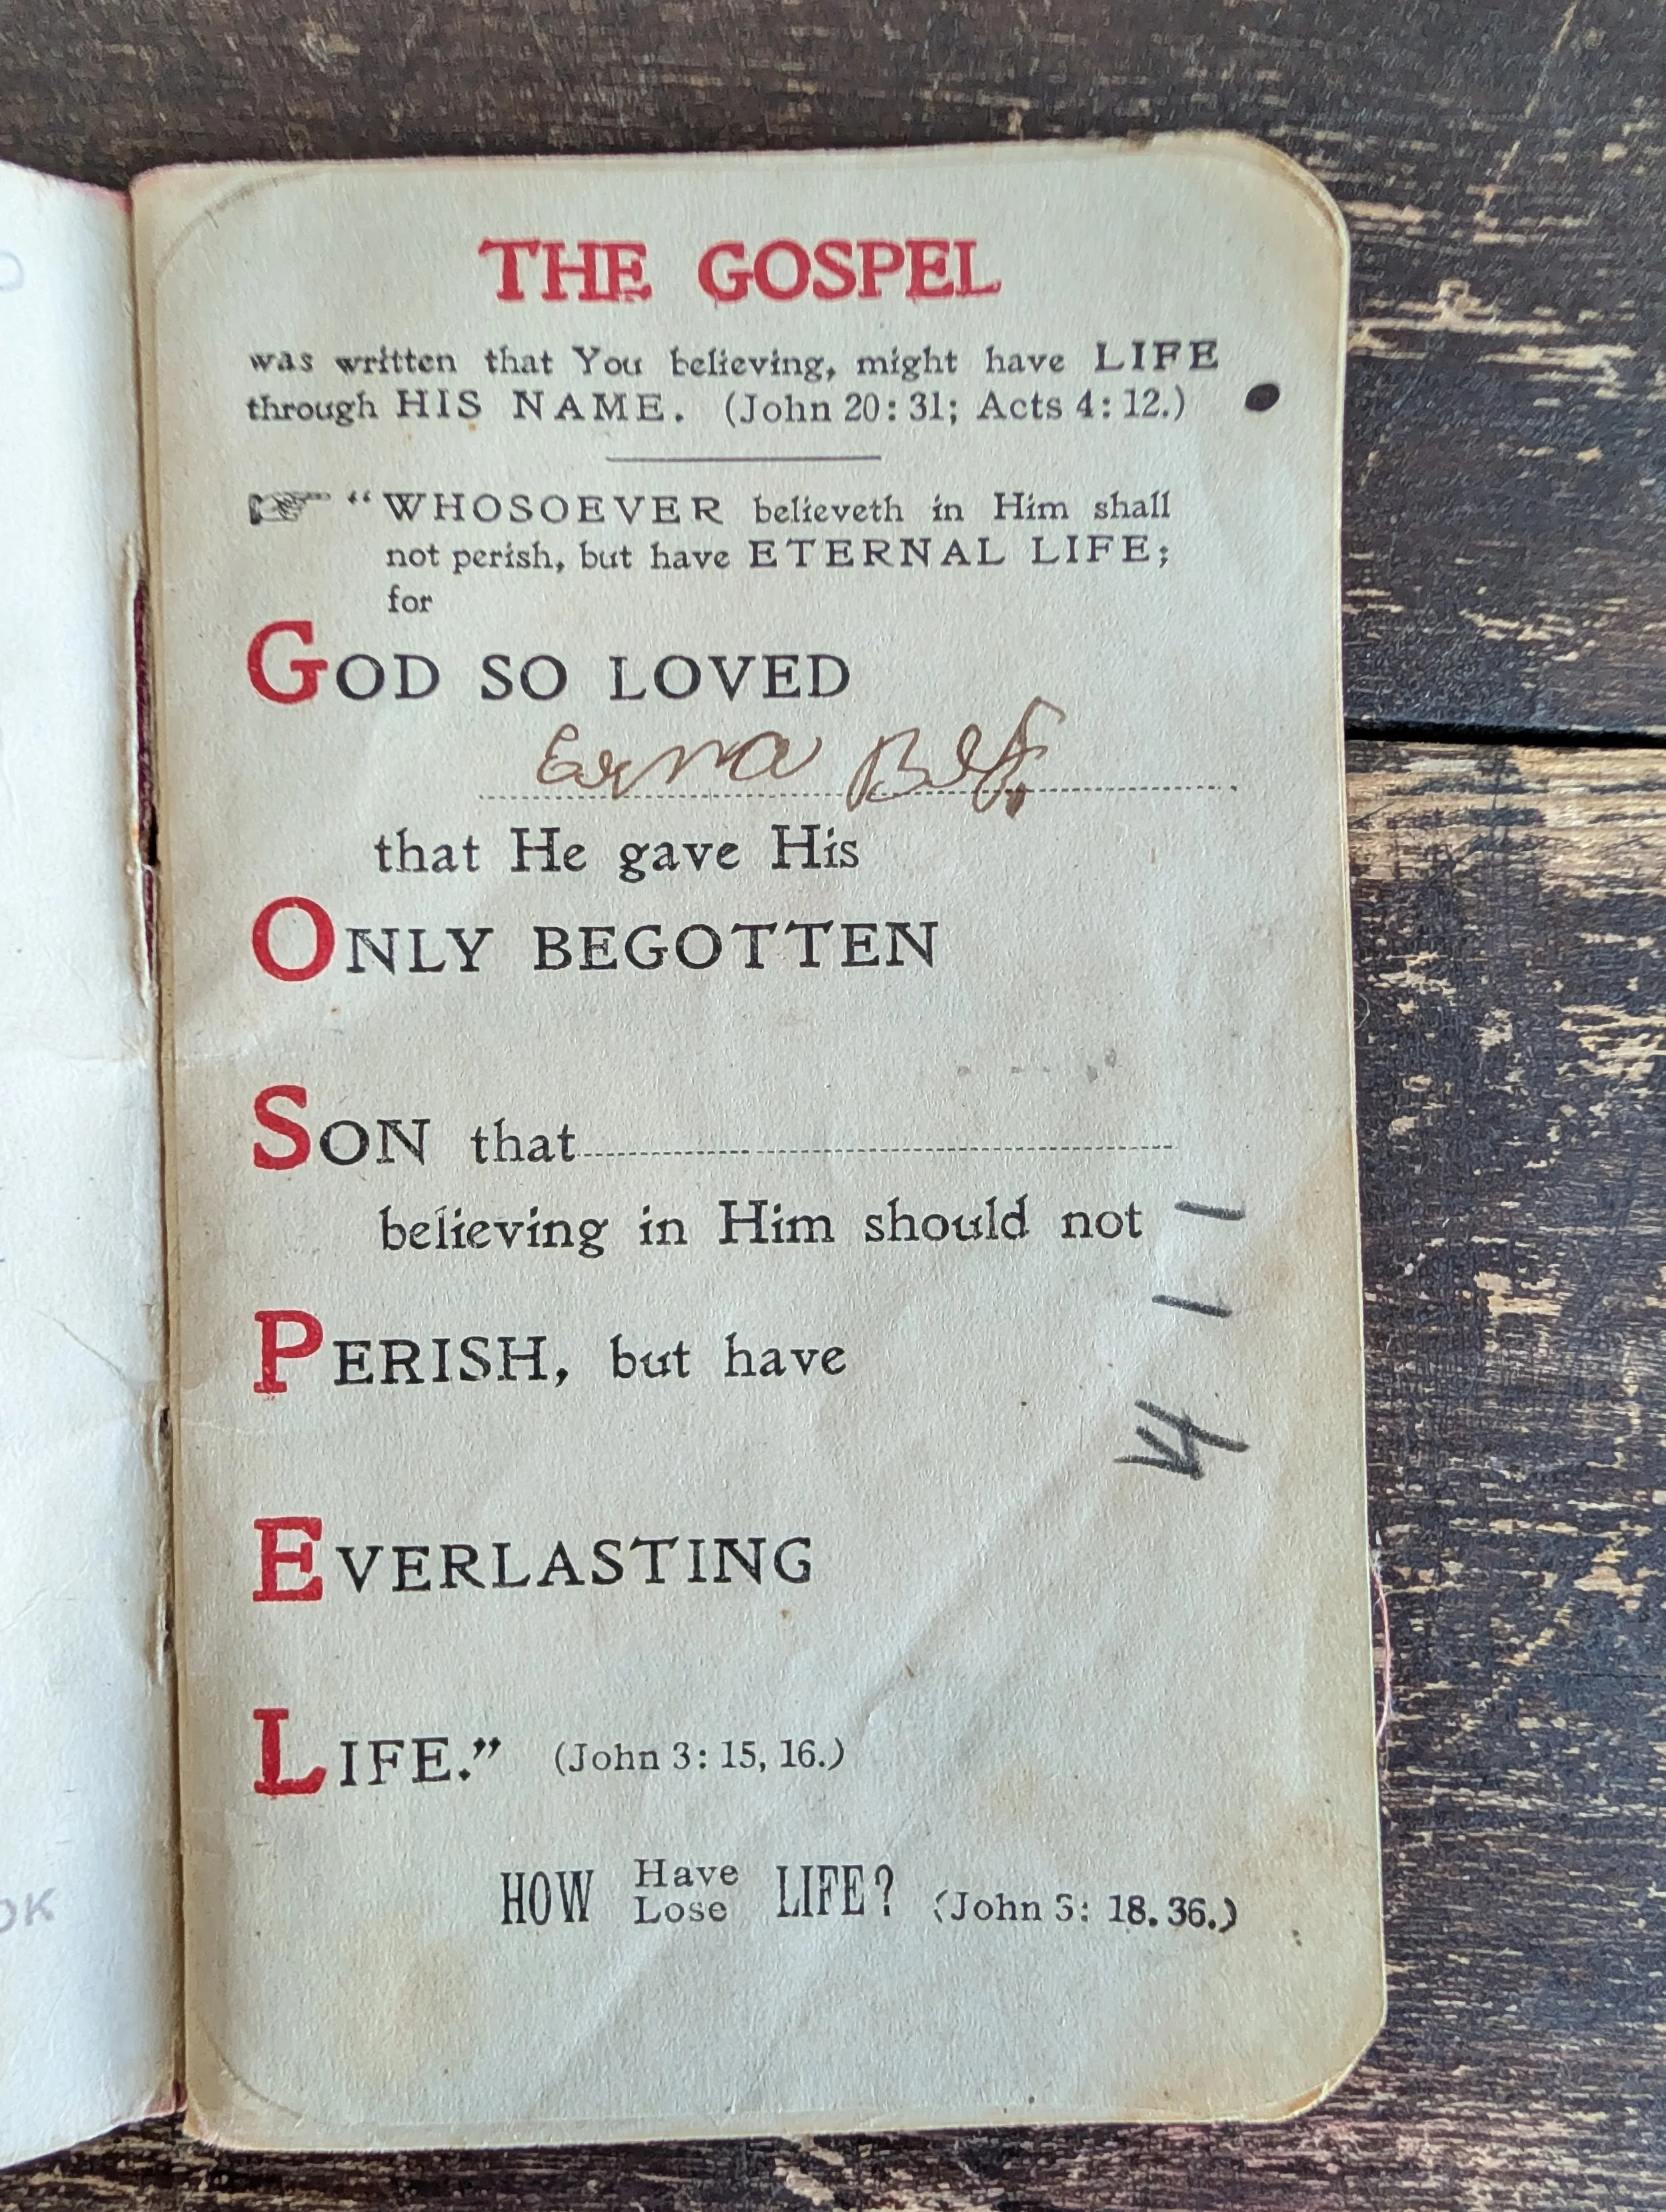 THE GOSPEL
was written that You believing, might have LIFE
through HIS NAME. (John 20: 31; Acts 4: 12.)
☞ “WHOSOEVER believeth in Him shall
not perish, but have ETERNAL LIFE;
for
GOD SO LOVED
that He gave His
ONLY BEGOTTEN
SON that
believing in Him should not
PERISH, but have
EVERLASTING
LIFE.” (John 3: 15, 16.)
HOW Have LIFE? (John 5: 18. 36.)
Lose